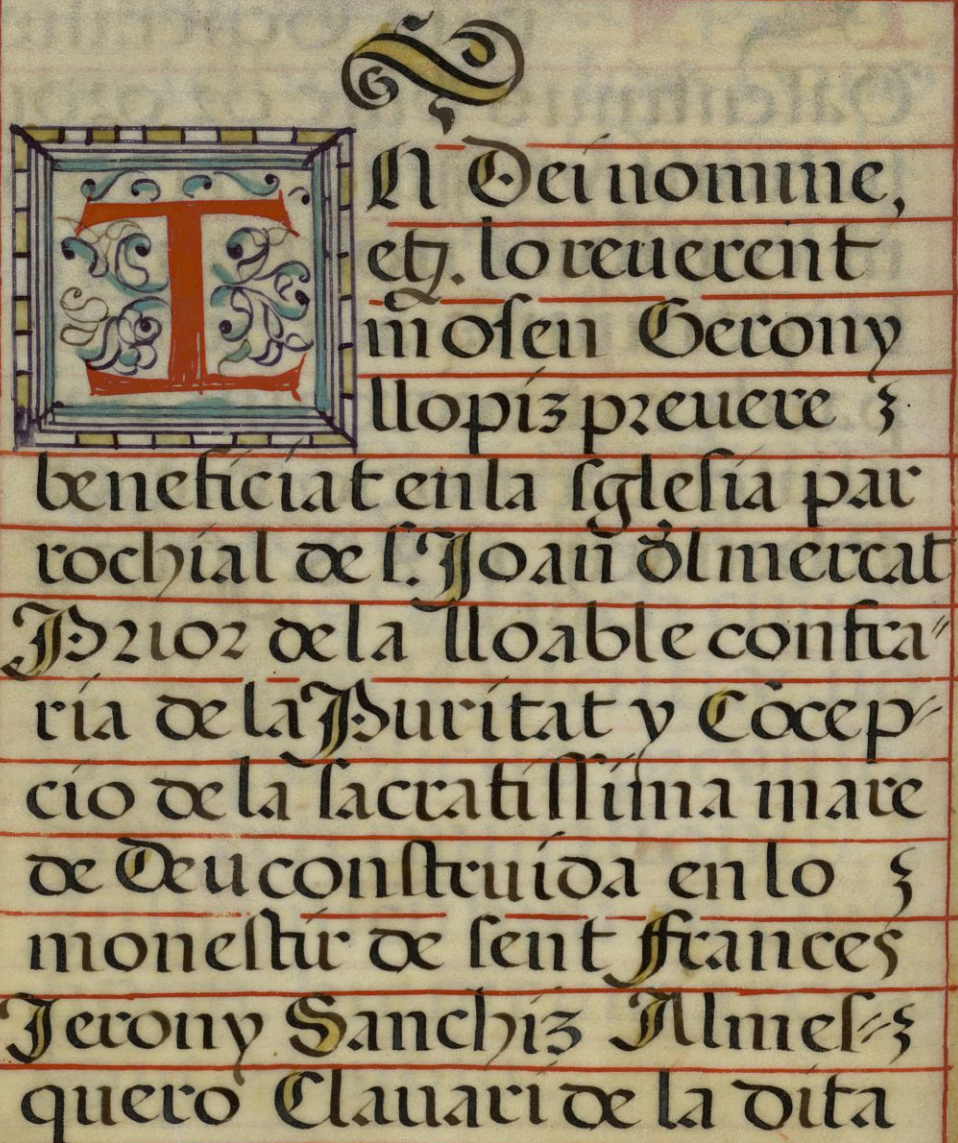 IN Dei nomine,
etz. lo reuerent
m̃osen Gerony
llopiz preuere
beneficiat en la sglesia par
rochial de s. Joan d̃l mercat
Prior de la lloable confra"
ria de la Puritat y Cõcep"
cio de la sacratissima mare
de Deu construida en lo
monestir de sent Frances
Jerony Sanchiz Almes"
quero Clauari de la dita